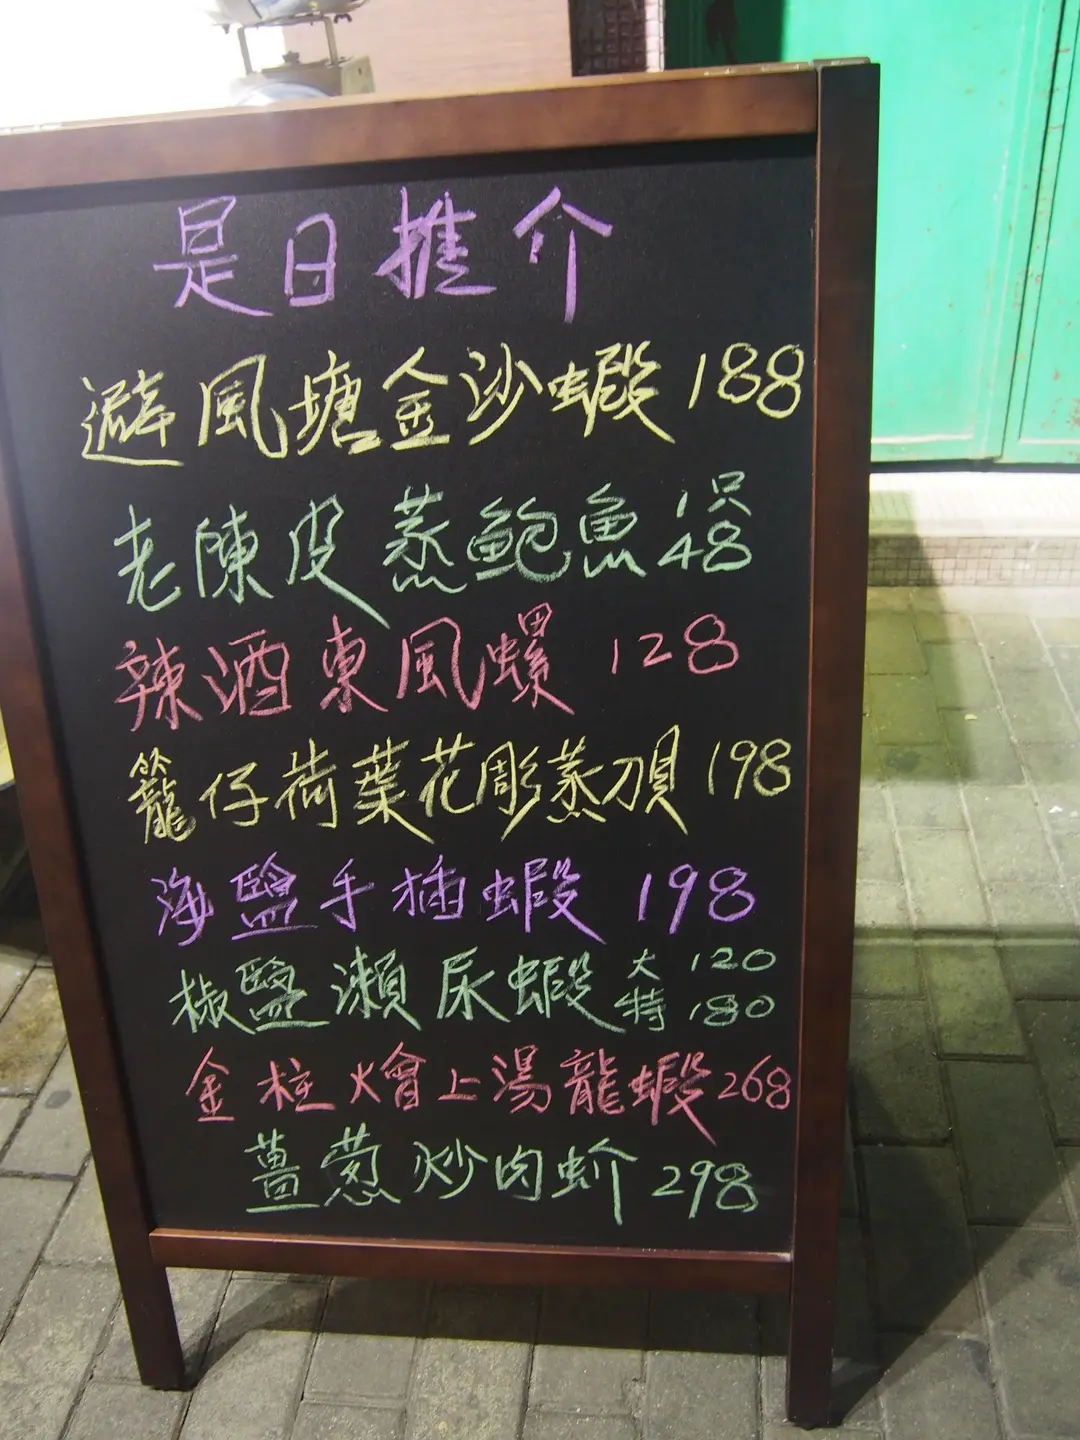 是日推介
避風塘金沙蝦 188
老陳皮蒸鮑魚 1只 48
辣酒東風螺 128
籠仔荷葉花彫蒸刀頁 198
海鹽手插蝦 198
椒鹽瀨尿蝦 大 120 特 180
金柱火會上湯龍蝦 268
薑葱炒肉蚧 298